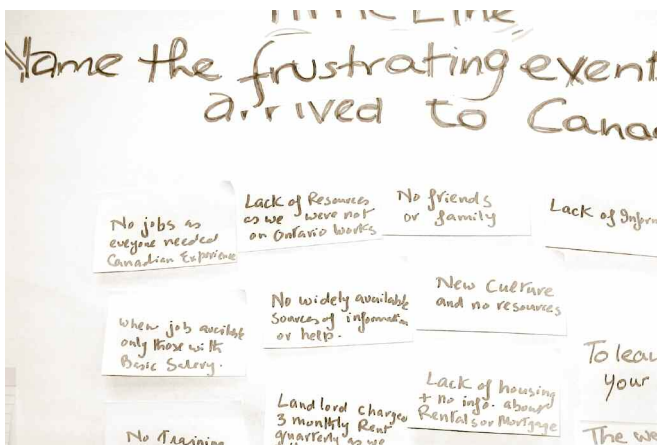 Time Line
Name the frustrating event
arrived to Canad
No jobs as
eveyone needed
Canadian Experience
Lack of Resources
as we were not
on Ontario Works
No friends
or family
Lack of Inform
when job available
only those with
Basic Salery.
No widely available
Sources of information
or help.
New Culture
and no resources
To leav
your
No Training
Landlord charges
3 monthly Rent
quarterly as we
Lack of housing
+ no info. about
Rentals or Mortgage
The we